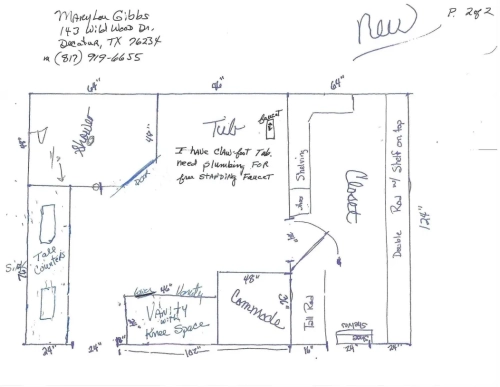 MaryLou Gibbs
143 Wild Wood Dr.
Decatur, TX 76234
(817) 919-6655
New
P. 2 of 2
64"
96"
64"
Shower
44"
Door
Tub
Faucet
I have claw-foot Tub.
need plumbing FOR
free STANDING Faucet
Shelving
Closet
Double Rod w/ Shelf on top
124"
Sink
76"
Tall
Counters
46"
Vanity
VANITY
with
Knee Space
48"
Commode
Tall Rod
Shelves
24"
24"
102"
16"
24"
24"